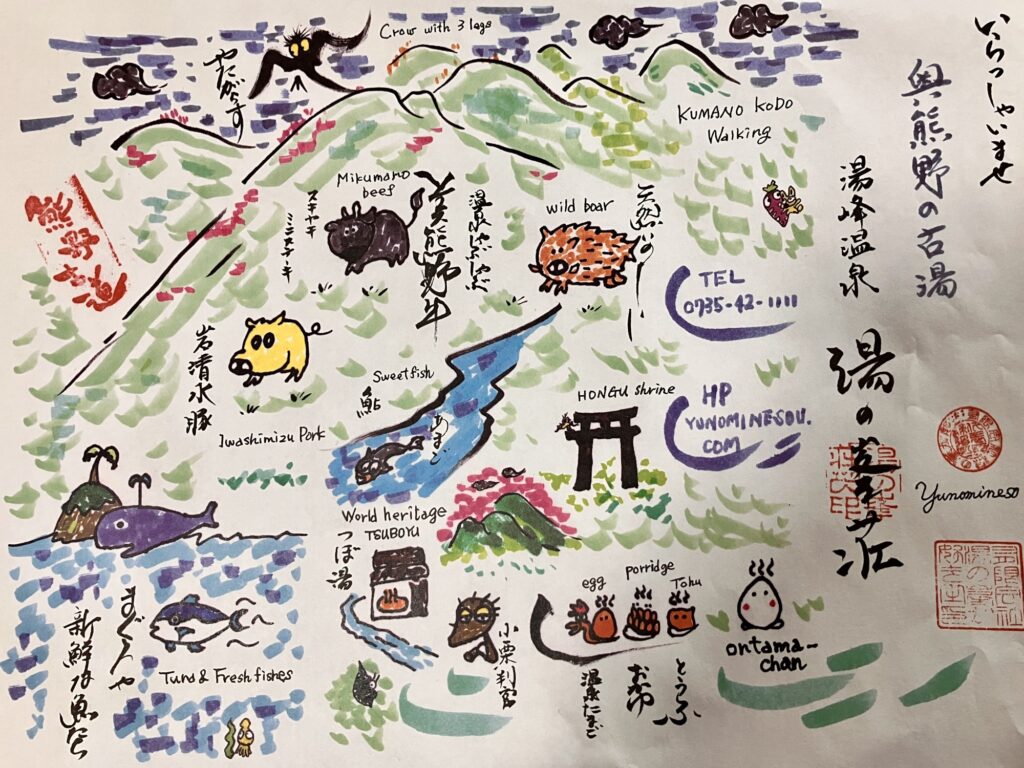 いらっしゃいませ
奥熊野の古湯
湯峰温泉
Yunomineso
Crow with 3 legs
やたがらす
KUMANO KODO
Walking
Mikumano
beef
スキヤキ
ミニステーキ
温泉しゃぶしゃぶ
wild boar
天然いのしし
TEL
0735-42-1111
岩清水豚
Iwashimizu Pork
Sweetfish
鮎
あまご
HONGU shrine
HP
YUNOMINESOU.
COM
World heritage
TSUBOYU
つぼ湯
小栗判官
egg
porridge
Tofu
温泉たまご
おかゆ
とうふ
ontama-
chan
まぐろや
新鮮な魚たち
Tuna & Fresh fishes